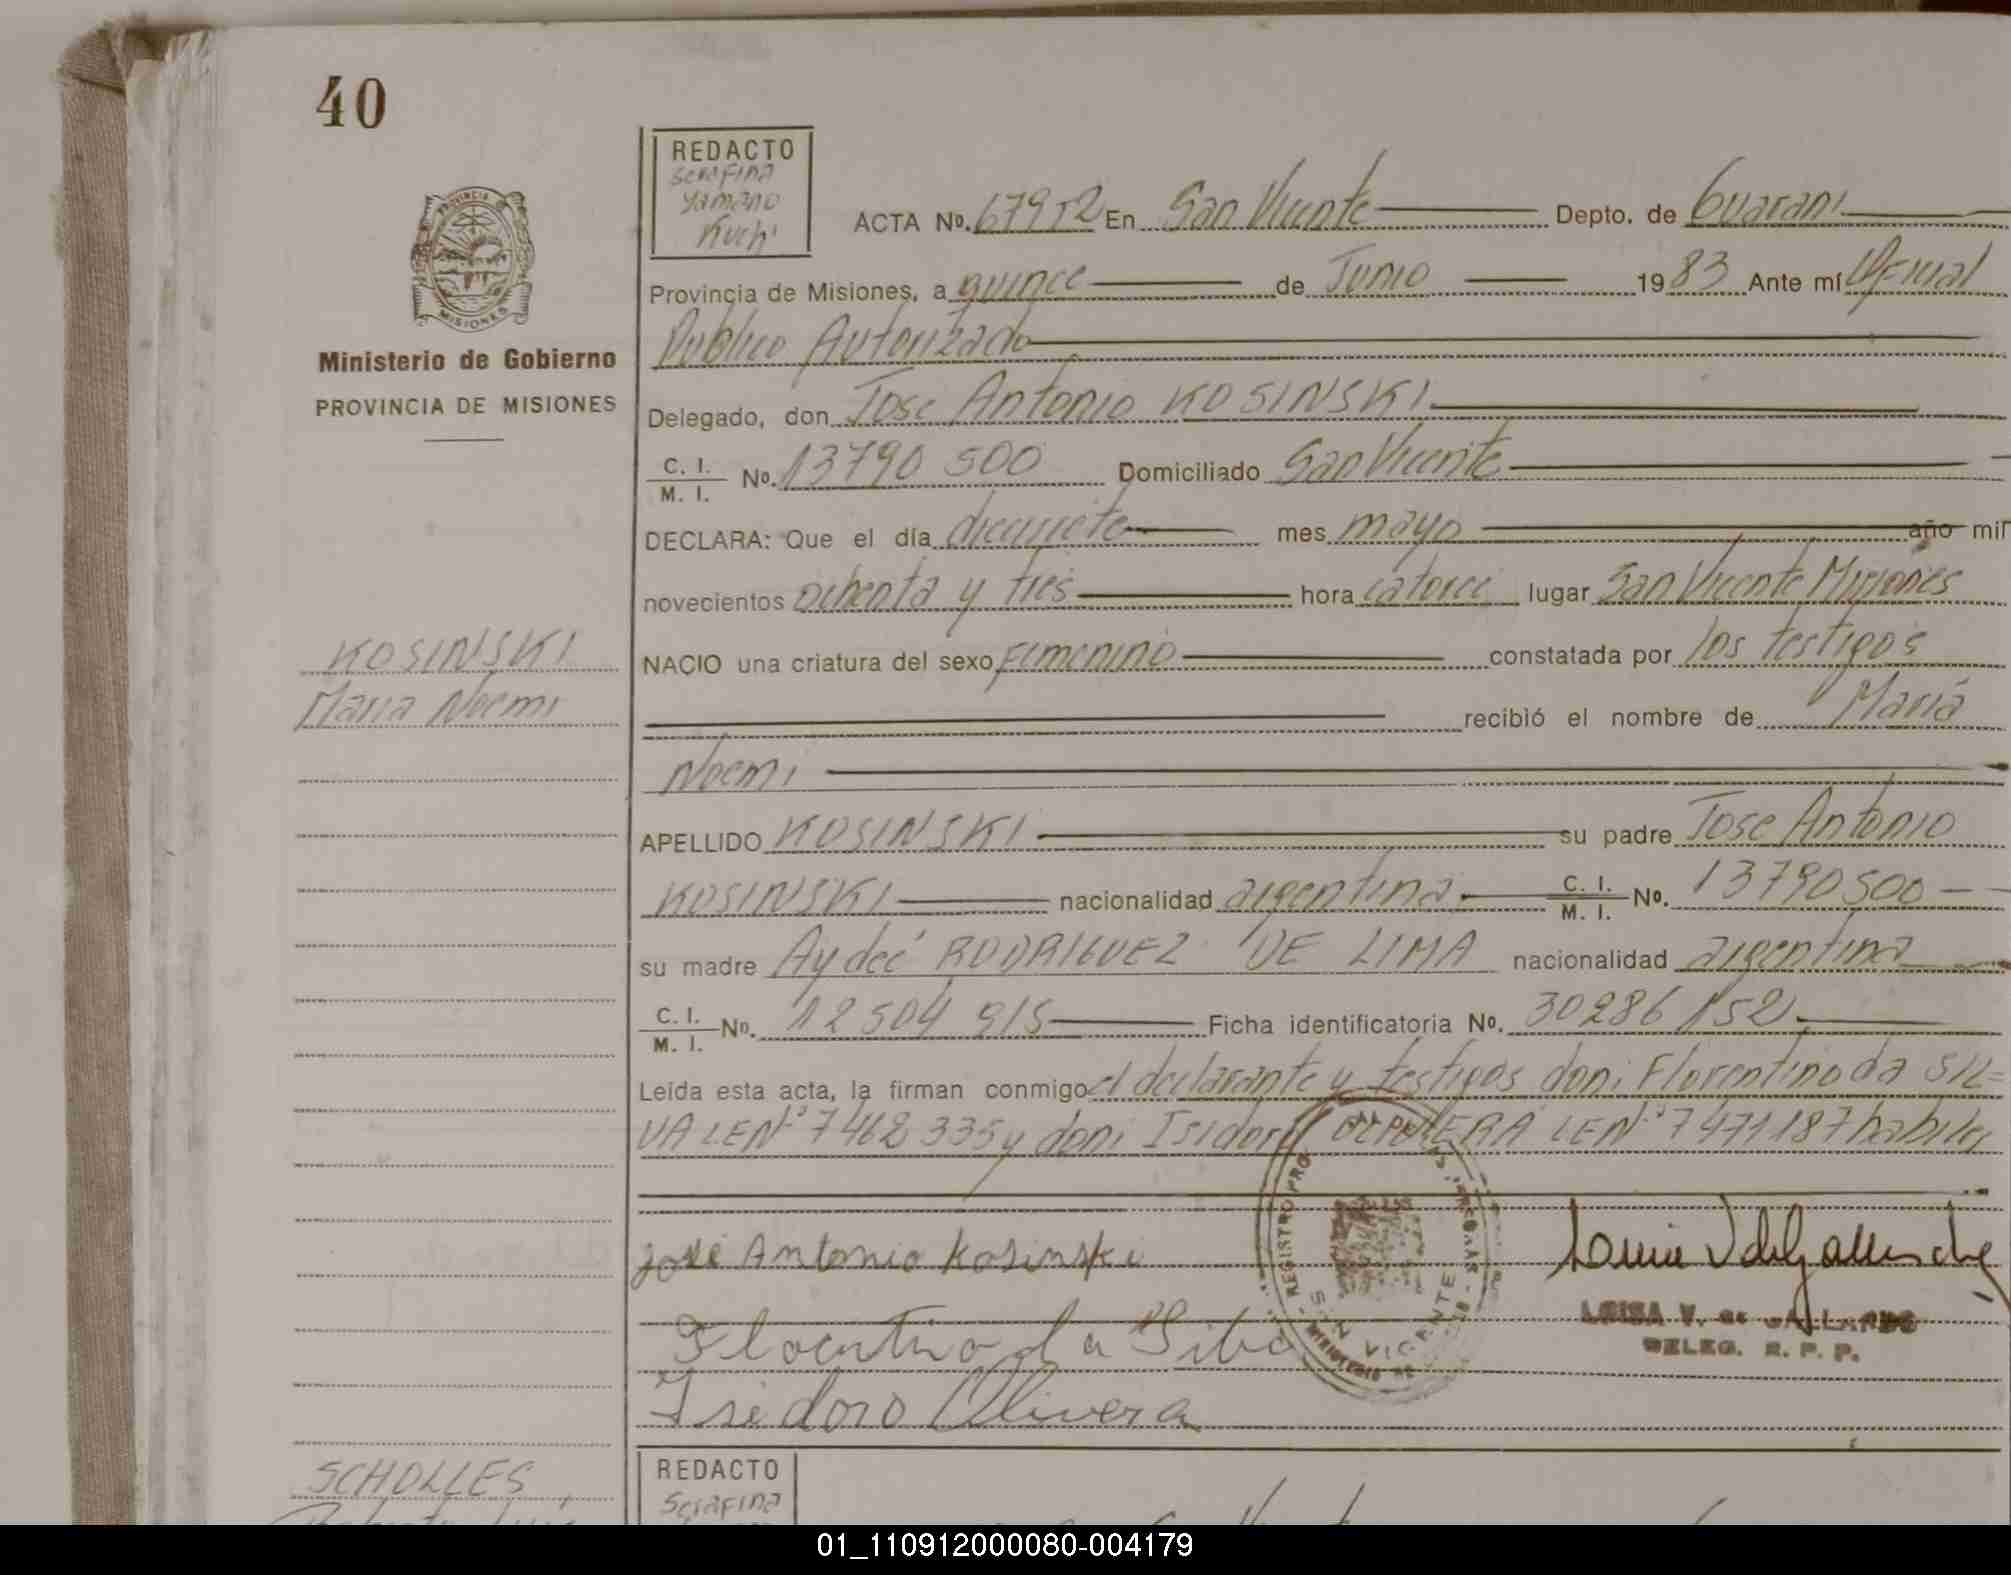 40
REDACTO
Serafina
Yamano
Kuchi
ACTA Nº. 67952 En San Vicente Depto. de Guarani
Provincia de Misiones, a quince de Junio 1983 Ante mí Oficial
Publico Autorizado
MISIONES
Ministerio de Gobierno
PROVINCIA DE MISIONES
Delegado, don Jose Antonio KOSINSKI
C. I.
M. I. Nº. 13790 500 Domiciliado San Vicente
DECLARA: Que el día diecisiete mes mayo año mil
novecientos ochenta y tres hora catorce lugar San Vicente Misiones
KOSINSKI
Maria Noemi
NACIO una criatura del sexo Femenino constatada por los testigos
recibió el nombre de Maria
Noemi
APELLIDO KOSINSKI su padre Jose Antonio
KOSINSKI nacionalidad argentina C. I. M. I. Nº. 13790500
su madre Aydeé RODRIGUEZ DE LIMA nacionalidad argentina
C. I.
M. I. Nº. 12504 915 Ficha identificatoria Nº. 30286 152
Leída esta acta, la firman conmigo el declarante y testigos don: Florentino da SIL=
VA LE Nº 7462335 y don: Isidoro OLIVERA LE Nº 7471187 habiles
José Antonio Kosinski
REGISTRO PRO
SAN VICENTE
LUISA V. de GALLARDO
DELEG. R. P. P.
Florentino da Silva
Isidoro Olivera
SCHOLLES
REDACTO
Serafina
01_110912000080-004179